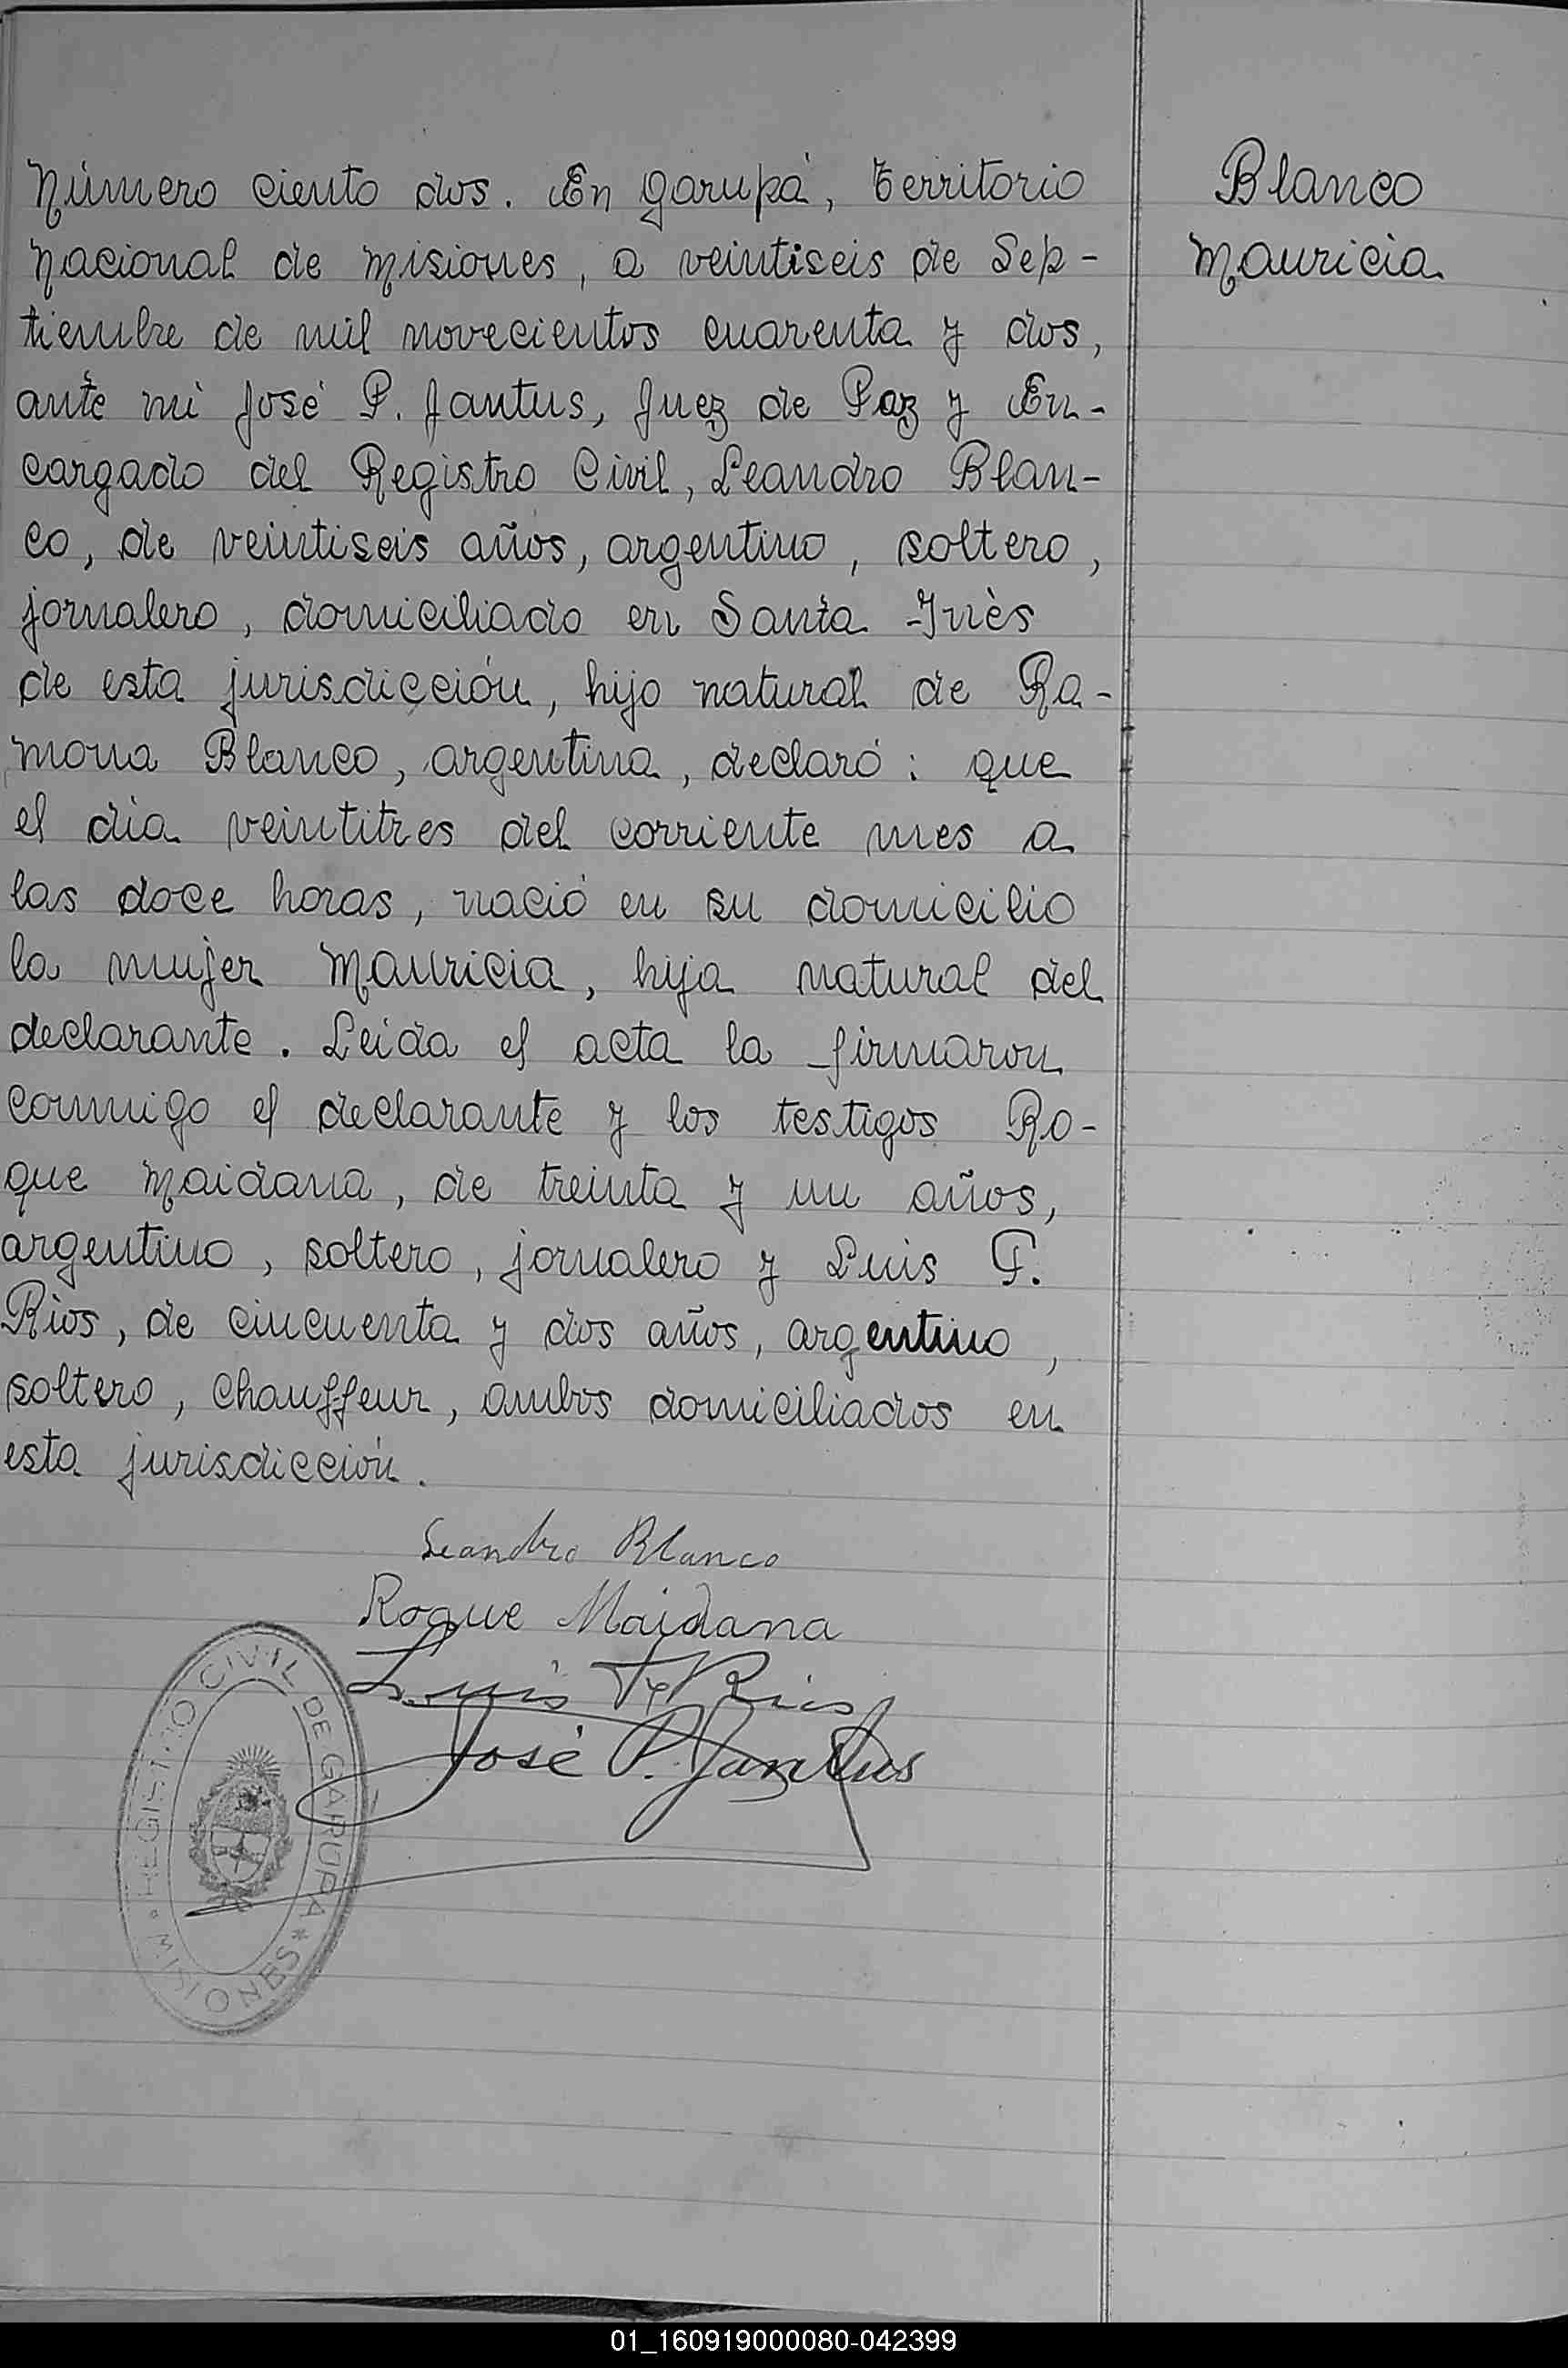 Número ciento dos. En Garupá, territorio
Nacional de Misiones, a veintiseis de Sep-
tiembre de mil novecientos cuarenta y dos,
ante mi José P. Jantus, Juez de Paz y En-
cargado del Registro Civil, Leandro Blan-
co, de veintiseis años, argentino, soltero,
jornalero, domiciliado en Santa Inès
de esta jurisdicción, hijo natural de Ra-
mona Blanco, argentina, declaró: que
el dia veintitres del corriente mes a
las doce horas, nació en su domicilio
la mujer Mauricia, hija natural del
declarante. Leida el acta la firmaron
conmigo el declarante y los testigos Ro-
que Maidana, de treinta y un años,
argentino, soltero, jornalero y Luis F.
Rios, de cincuenta y dos años, argentino,
soltero, chauffeur, ambos domiciliados en
esta jurisdicción.
Leandro Blanco
Roque Maidana
Luis F. Rios
José P. Jantus
REGISTRO CIVIL DE GARUPA
* MISIONES *
Blanco
Mauricia
01_160919000080-042399